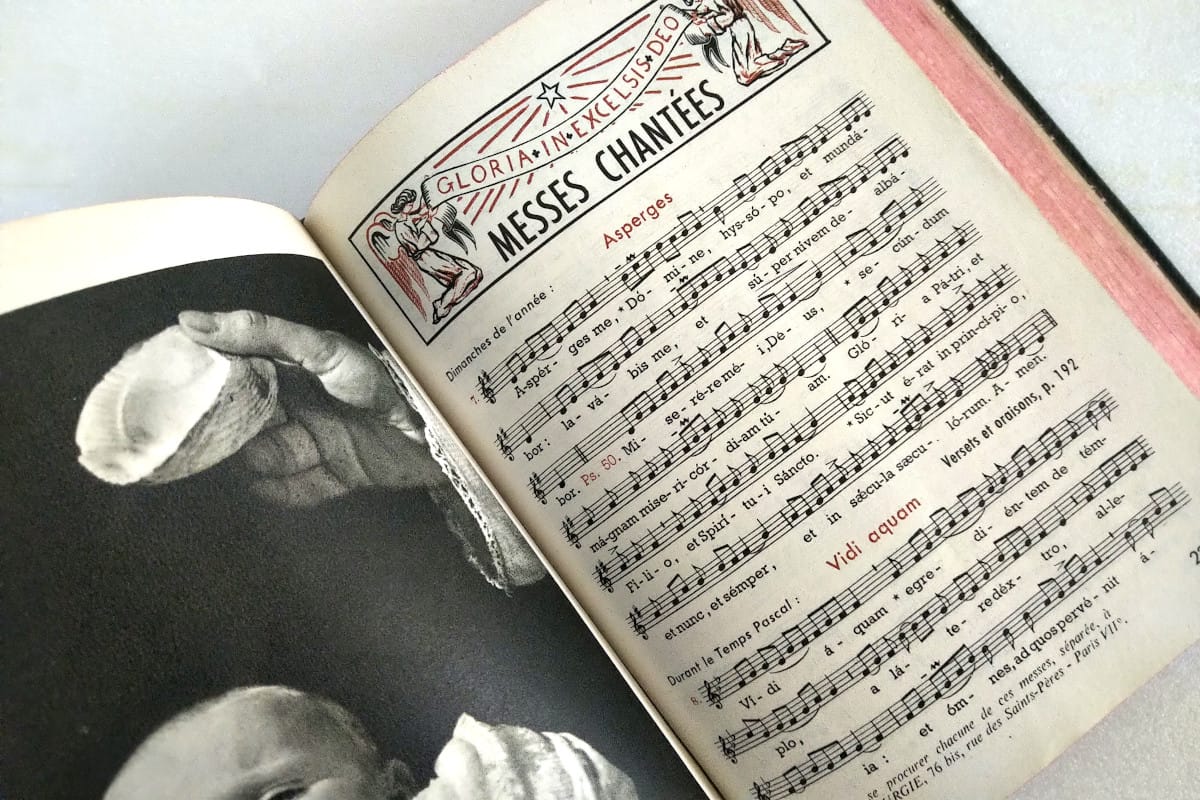 GLORIA✦IN✦EXCELSIS✦DEO
MESSES CHANTÉES
Asperges
Dimanches de l'année :
7.
A-spér- ges me, *Dó- mi- ne, hys-só- po, et mundá-
bor : la- vá- bis me, et sú- per nivem de- albá-
bor. Ps. 50. Mi- se- ré-re mé- i, Dé- us, * se- cún- dum
mágnam mise- ri- cór- di-am tú- am. Gló- ri- a Pá-tri, et
Fí- li- o, et Spirí- tu- i Sáncto. *Sic-ut é-rat in prin-cí-pi-o,
et nunc, et sémper, et in sǽcu-la sæcu- ló-rum. A- men.
Versets et oraisons, p. 192
Vidi aquam
Durant le Temps Pascal :
8.
Vi- di á- quam * egre- di- én-tem de tém-
plo, a lá- te- re déx- tro, al-le-
ia : et óm- nes, ad quos pervé- nit á-
se procurer chacune de ces messes, séparée, à
URGIE, 76 bis, rue des Saints-Pères - Paris VIIe.